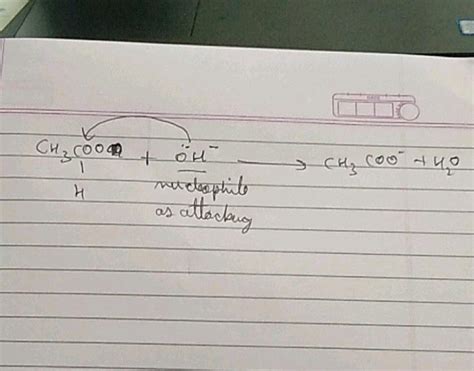 CH₃COO + ÖH⁻ → CH₃COO⁻ + H₂O
H
nucleophile
as attacking